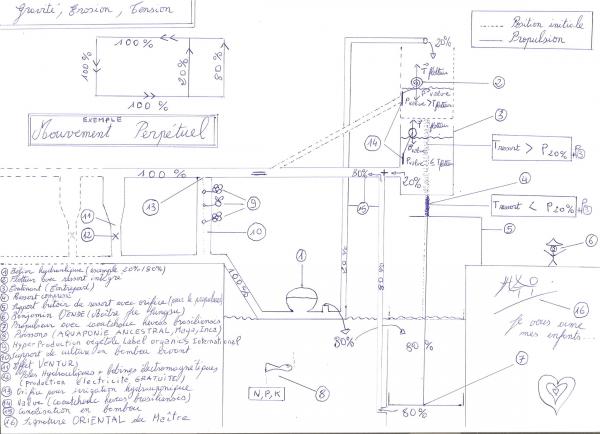 Gravité, Erosion, Tension
Position initiale
Propulsion
100 %
100 %
20%
80%
100 %
EXEMPLE
Mouvement Perpétuel
20%
T flotteur
2
P valve
P valve > T flotteur
3
T flotteur
14
P valve
P valve ≤ T flotteur
T ressort > P 20%
100 %
=
80%
+
20%
4
T ressort < P 20%
13
9
15
11
12
10
20%
80%
5
6
100%
1
16
Je vous aime
mes enfants...
80%
80 %
7
8
N, P, K
80%
1 Bélier hydraulique (exemple 20% / 80%)
2 Flotteur avec ressort intégré
3
4 Ressort comprimé
5 Support buteur de ressort avec orifice (par le propulseur)
6 Benjamin
7 Propulseur avec caoutchouc hévéas brasiliensis
8 Poissons (AQUAPONIE ANCESTRAL, Maya, Inca)
9 Hyper Production végétale Label organics International
10 Support de culture en bambou vivant
11 Effet VENTURI
12 Hydrauliques + bobines électromagnétiques
(Production électricité GRATUITE)
13 Orifice pour irrigation hydroponique
14 Valve (caoutchouc hévéas brasiliensis)
15 Canalisation en bambou
16 Signature ORIENTAL du Maître